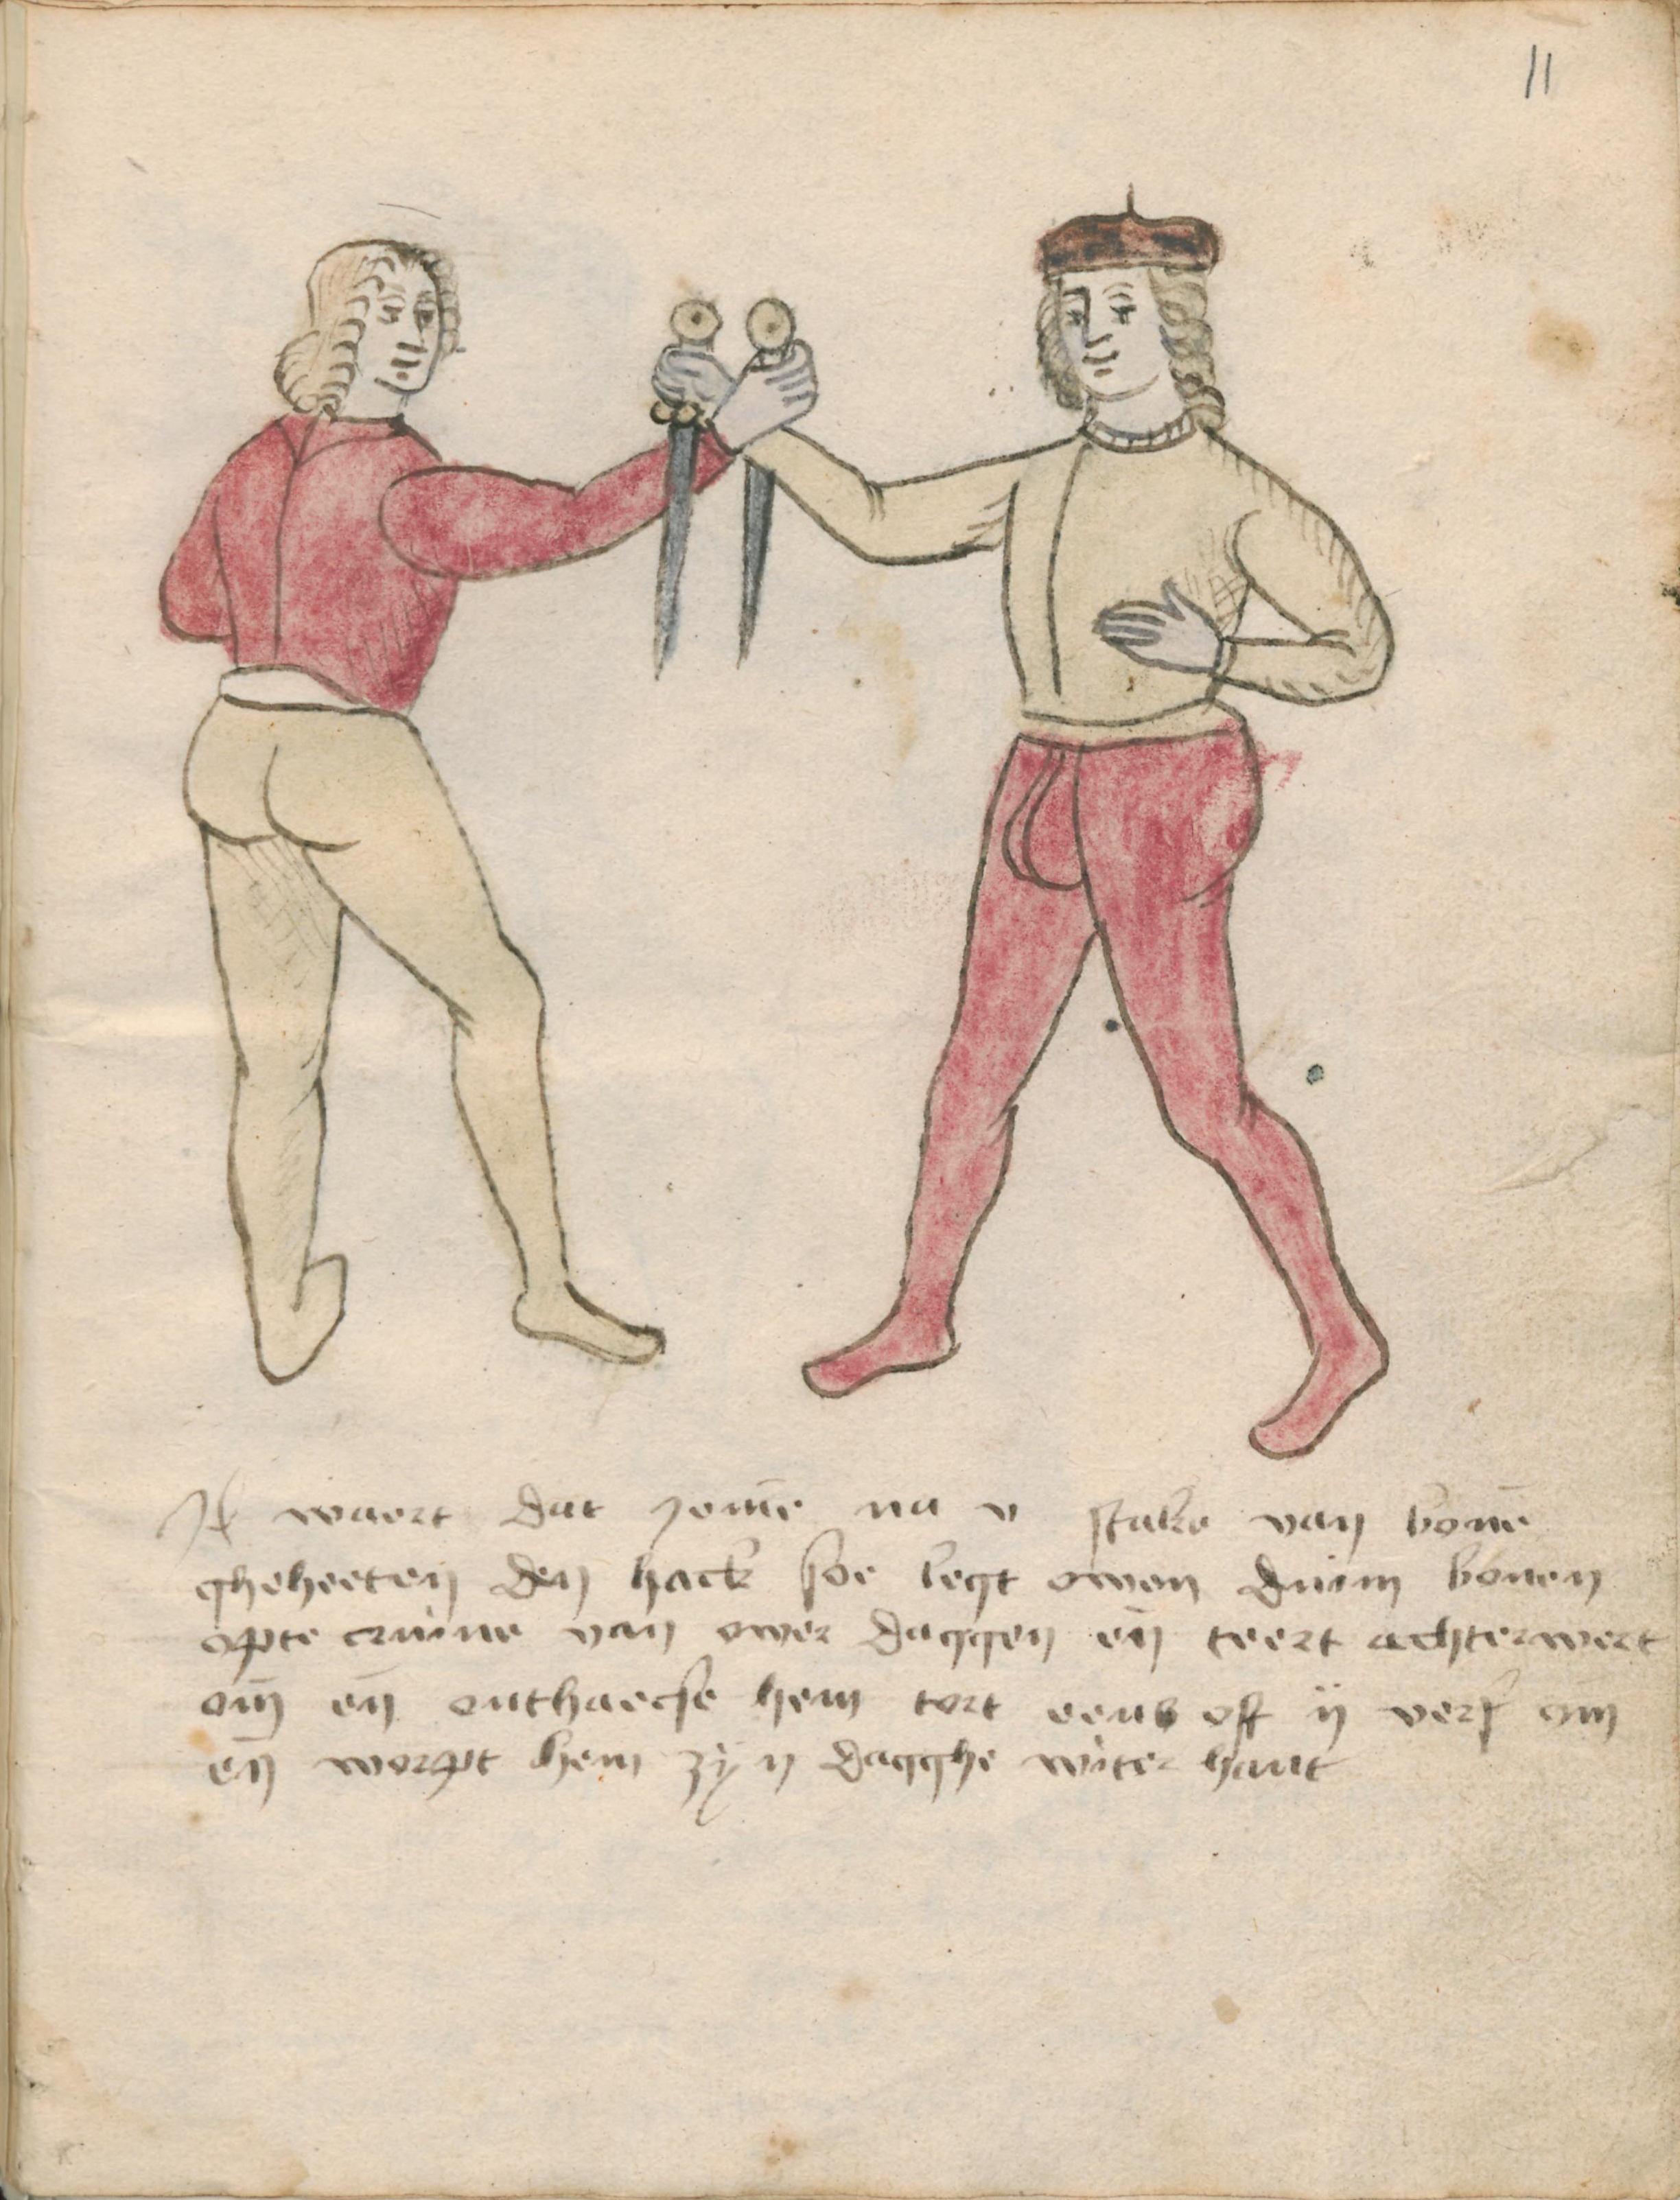 11
Jst waert dat yemē na v stake van bouē
gheheeten den hack soe legt owen duim bouen
opte cruine van ower daggen en̄ teert achterwert
om̄ en̄ onthaecse hem tort eens off ij vers om̄
en̄ worpt hem zijn dagghe witer hant